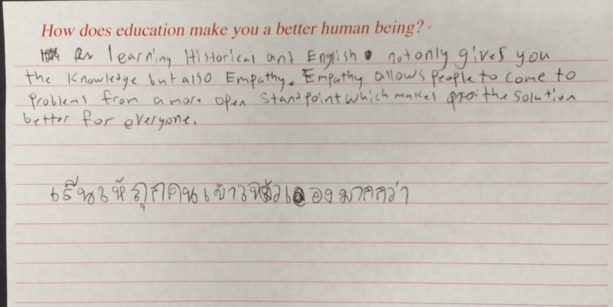 How does education make you a better human being?
As learning Historical and English not only gives you
the knowledge but also Empathy. Empathy allows people to come to
Problems from a more open Standpoint which makes the Solution
better for everyone.
เรียนให้ทุกคนเข้าใจตัวเองมากกว่า